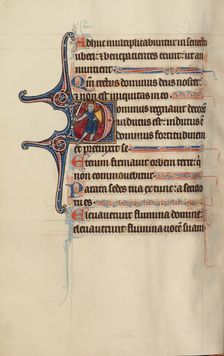 Adhuc multiplicabuntur in senecta
uberi: et benepacientes erunt: ut an
nuncient
Qm rectus dominus deus noster
et non est iniquitas in eo
Dominus regnauit decorem
indutus est: indutus est
dominus fortitudinem
et precinxit se
Etenim firmauit orbem terre: q
non commouebitur
Parata sedes tua ex tunc: a seculo
tu es
Eleuauerunt flumina domine:
eleuauerunt flumina uocem suam